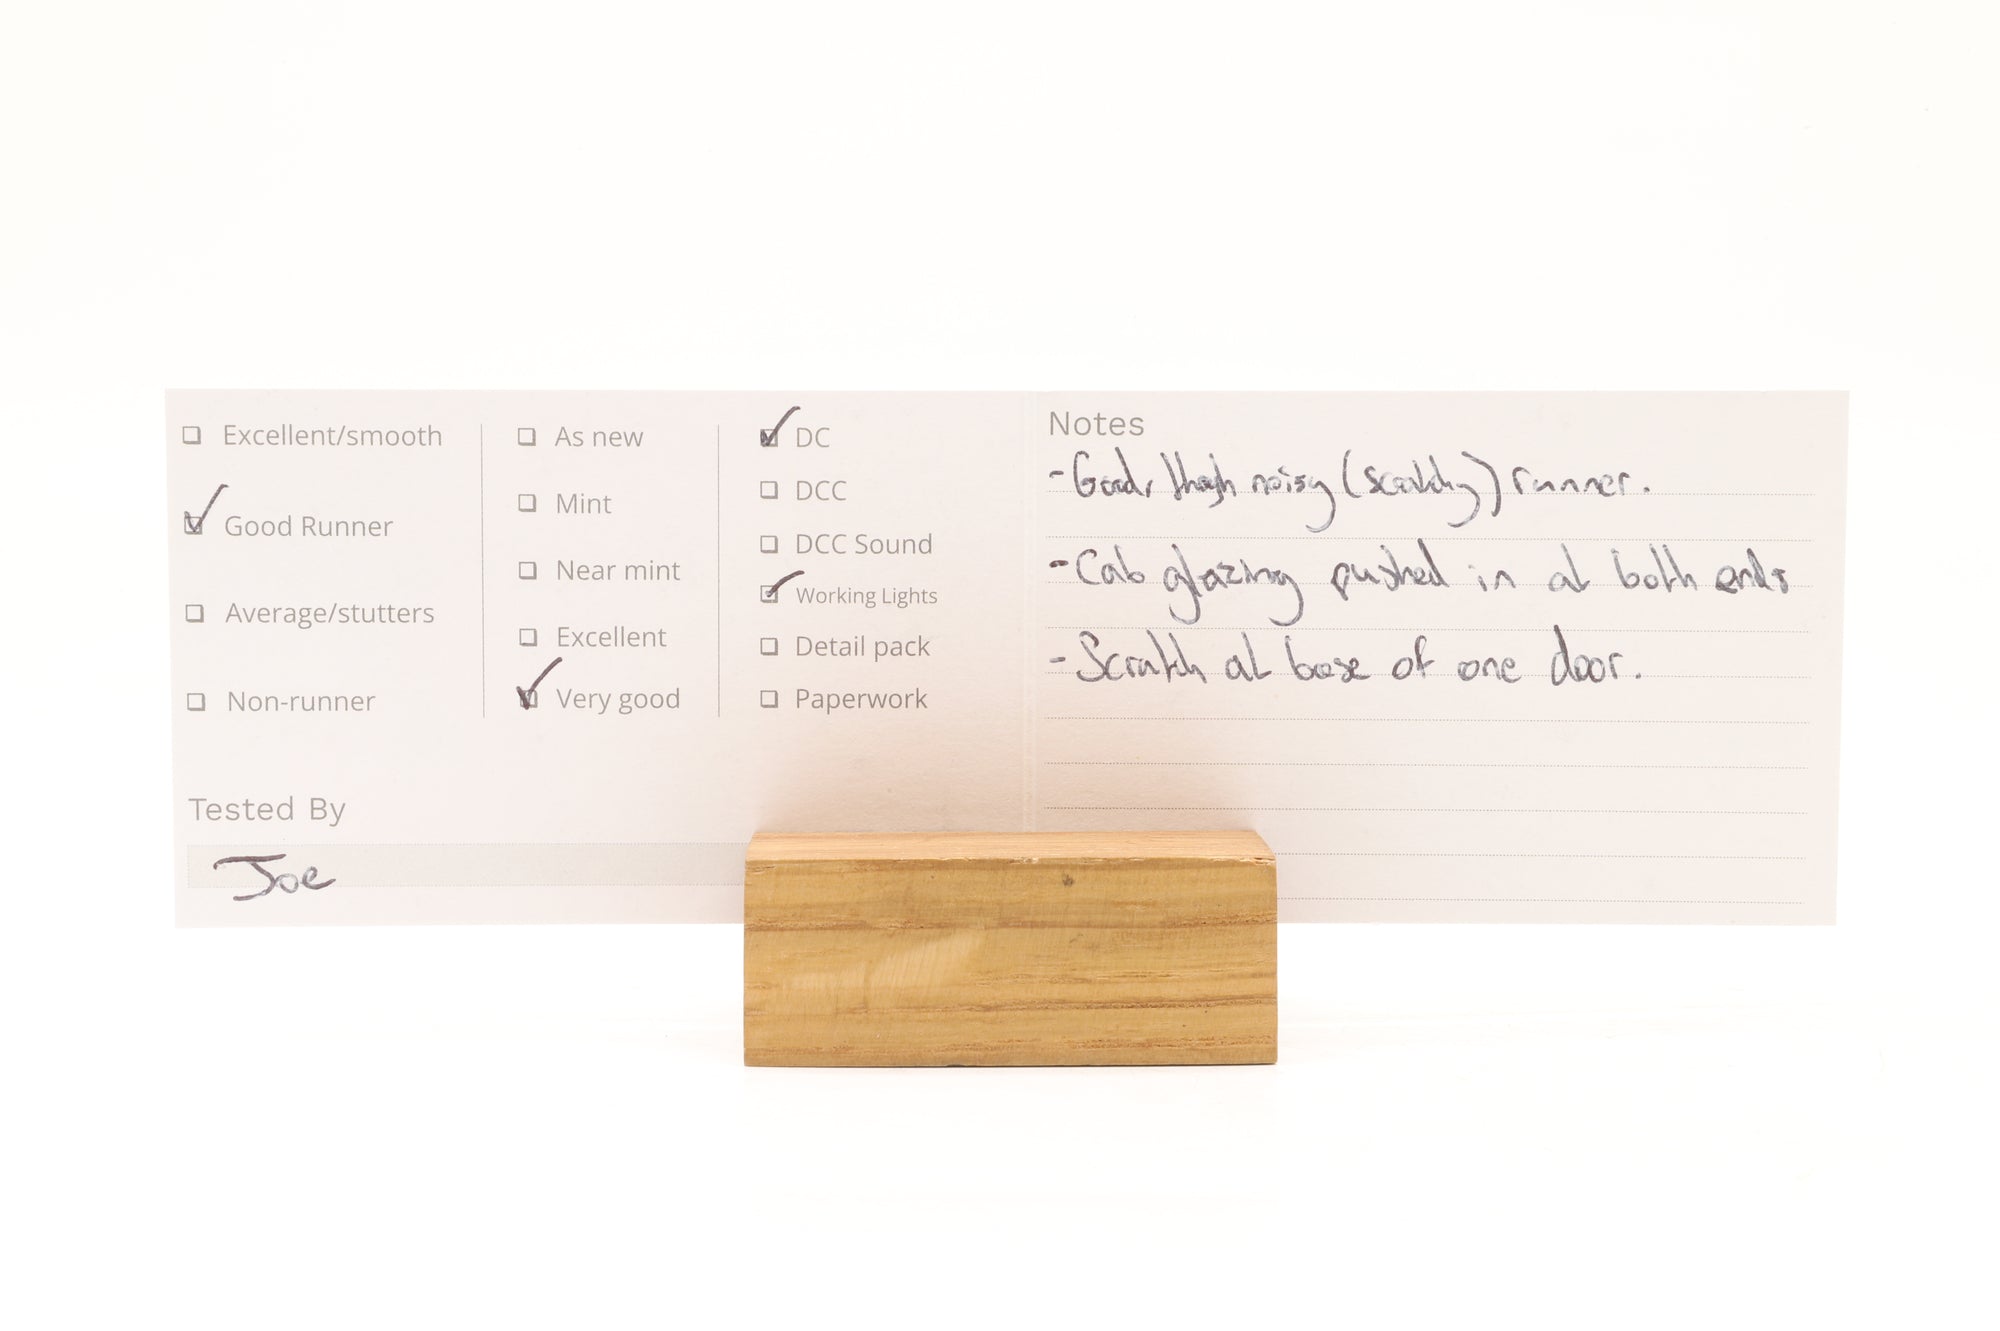 Excellent/smooth
Good Runner
Average/stutters
Non-runner
As new
Mint
Near mint
Excellent
Very good
DC
DCC
DCC Sound
Working Lights
Detail pack
Paperwork
Tested By
Joe
Notes
- Good, though noisy (scratchy) runner.
- Cab glazing pushed in at both ends
- Scratch at base of one door.